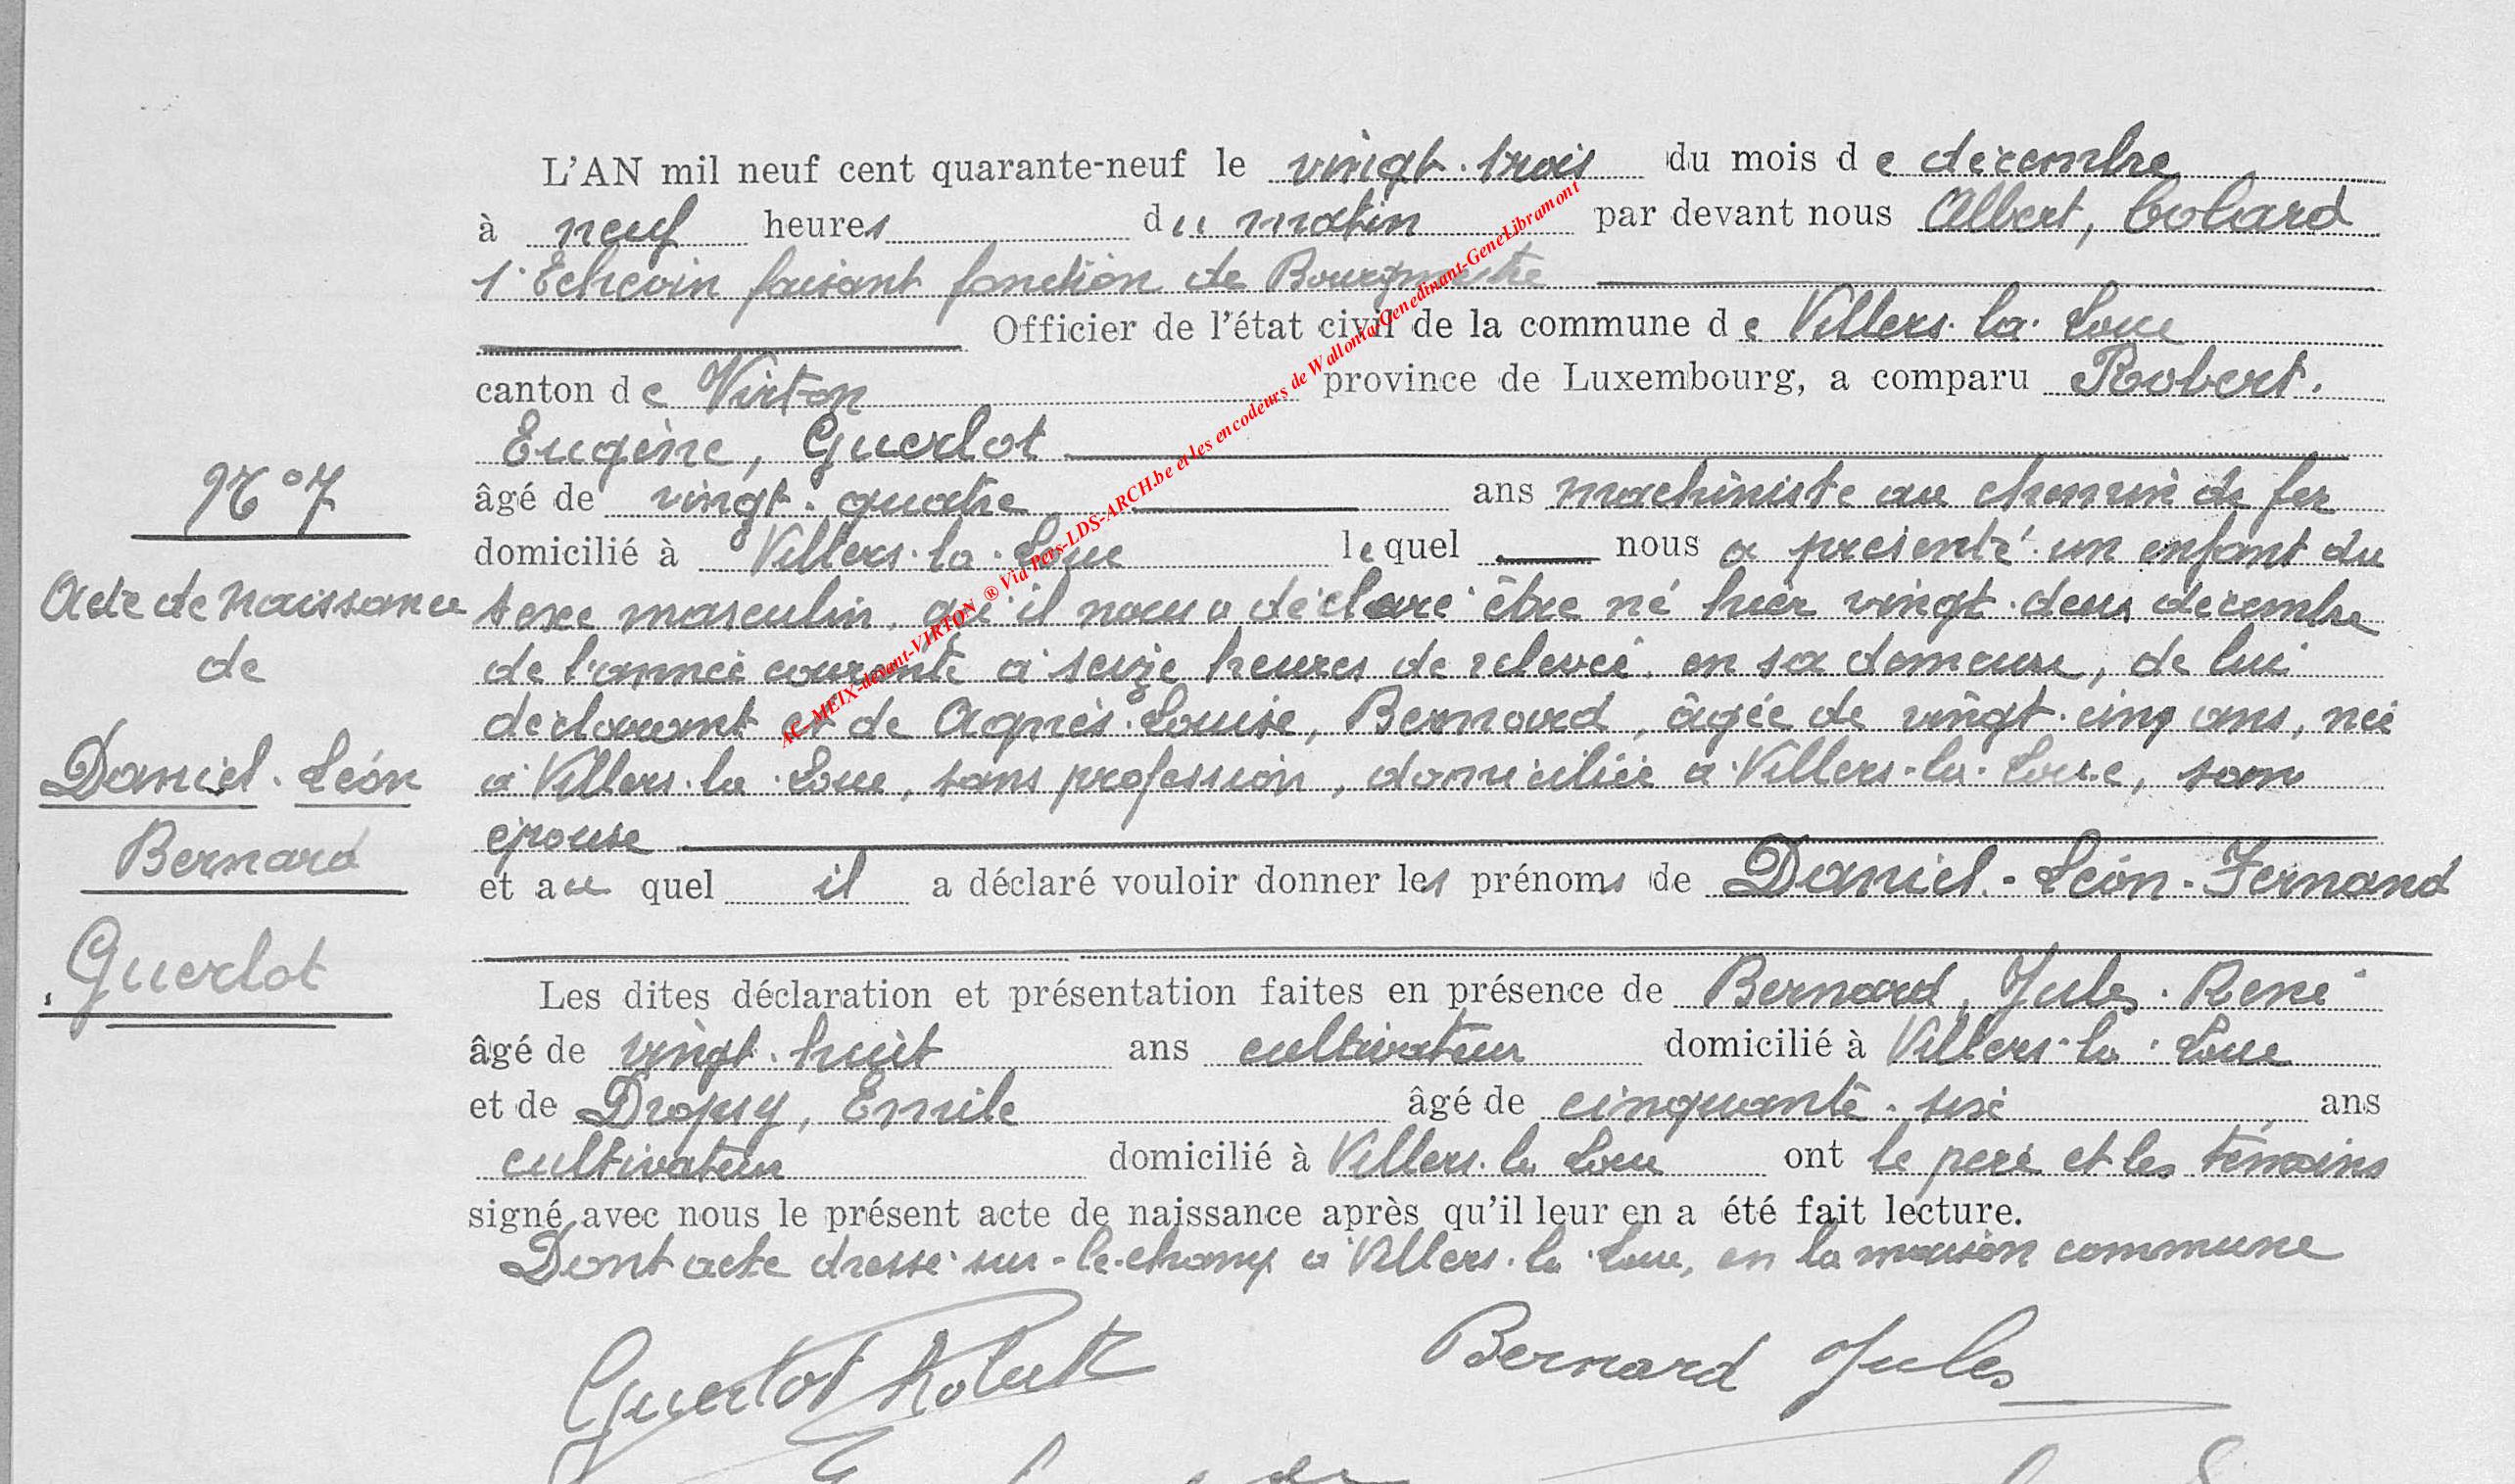 L'AN mil neuf cent quarante-neuf le vingt-trois du mois de décembre
à neuf heures du matin par devant nous Albert, Colard
1r Echevin faisant fonction de Bourgmestre
Officier de l'état civil de la commune de Villers-la-Loue
canton de Virton province de Luxembourg, a comparu Robert.
Eugène, Guerlot
N° 7
âgé de vingt-quatre ans machiniste au chemin de fer
domicilié à Villers-la-Loue lequel nous a présenté un enfant du
Acte de naissance
sexe masculin, qu'il nous a déclaré être né hier vingt-deux décembre
de
de l'année courante à seize heures de relevée, en sa demeure, de lui
déclarant et de Agnès-Louise, Bernard, âgée de vingt-cinq ans, née
Daniel-Léon
à Villers-la-Loue, sans profession, domiciliée à Villers-la-Loue, son
épouse
Bernard
et auquel il a déclaré vouloir donner les prénoms de Daniel-Léon-Fernand
Guerlot
Les dites déclaration et présentation faites en présence de Bernard, Jules-René
âgé de vingt-huit ans cultivateur domicilié à Villers-la-Loue
et de Dropsy, Emile âgé de cinquante-six ans
cultivateur domicilié à Villers-la-Loue ont le père et les témoins
signé avec nous le présent acte de naissance après qu'il leur en a été fait lecture.
Dont acte dressé sur-le-champ à Villers-la-Loue, en la maison commune
Guerlot Robert
Bernard Jules
AC-MEIX-devant-VIRTON ® Via Pers-LDS-ARCH.be et les encodeurs de Wallonia-Genedinant-GeneLibramont